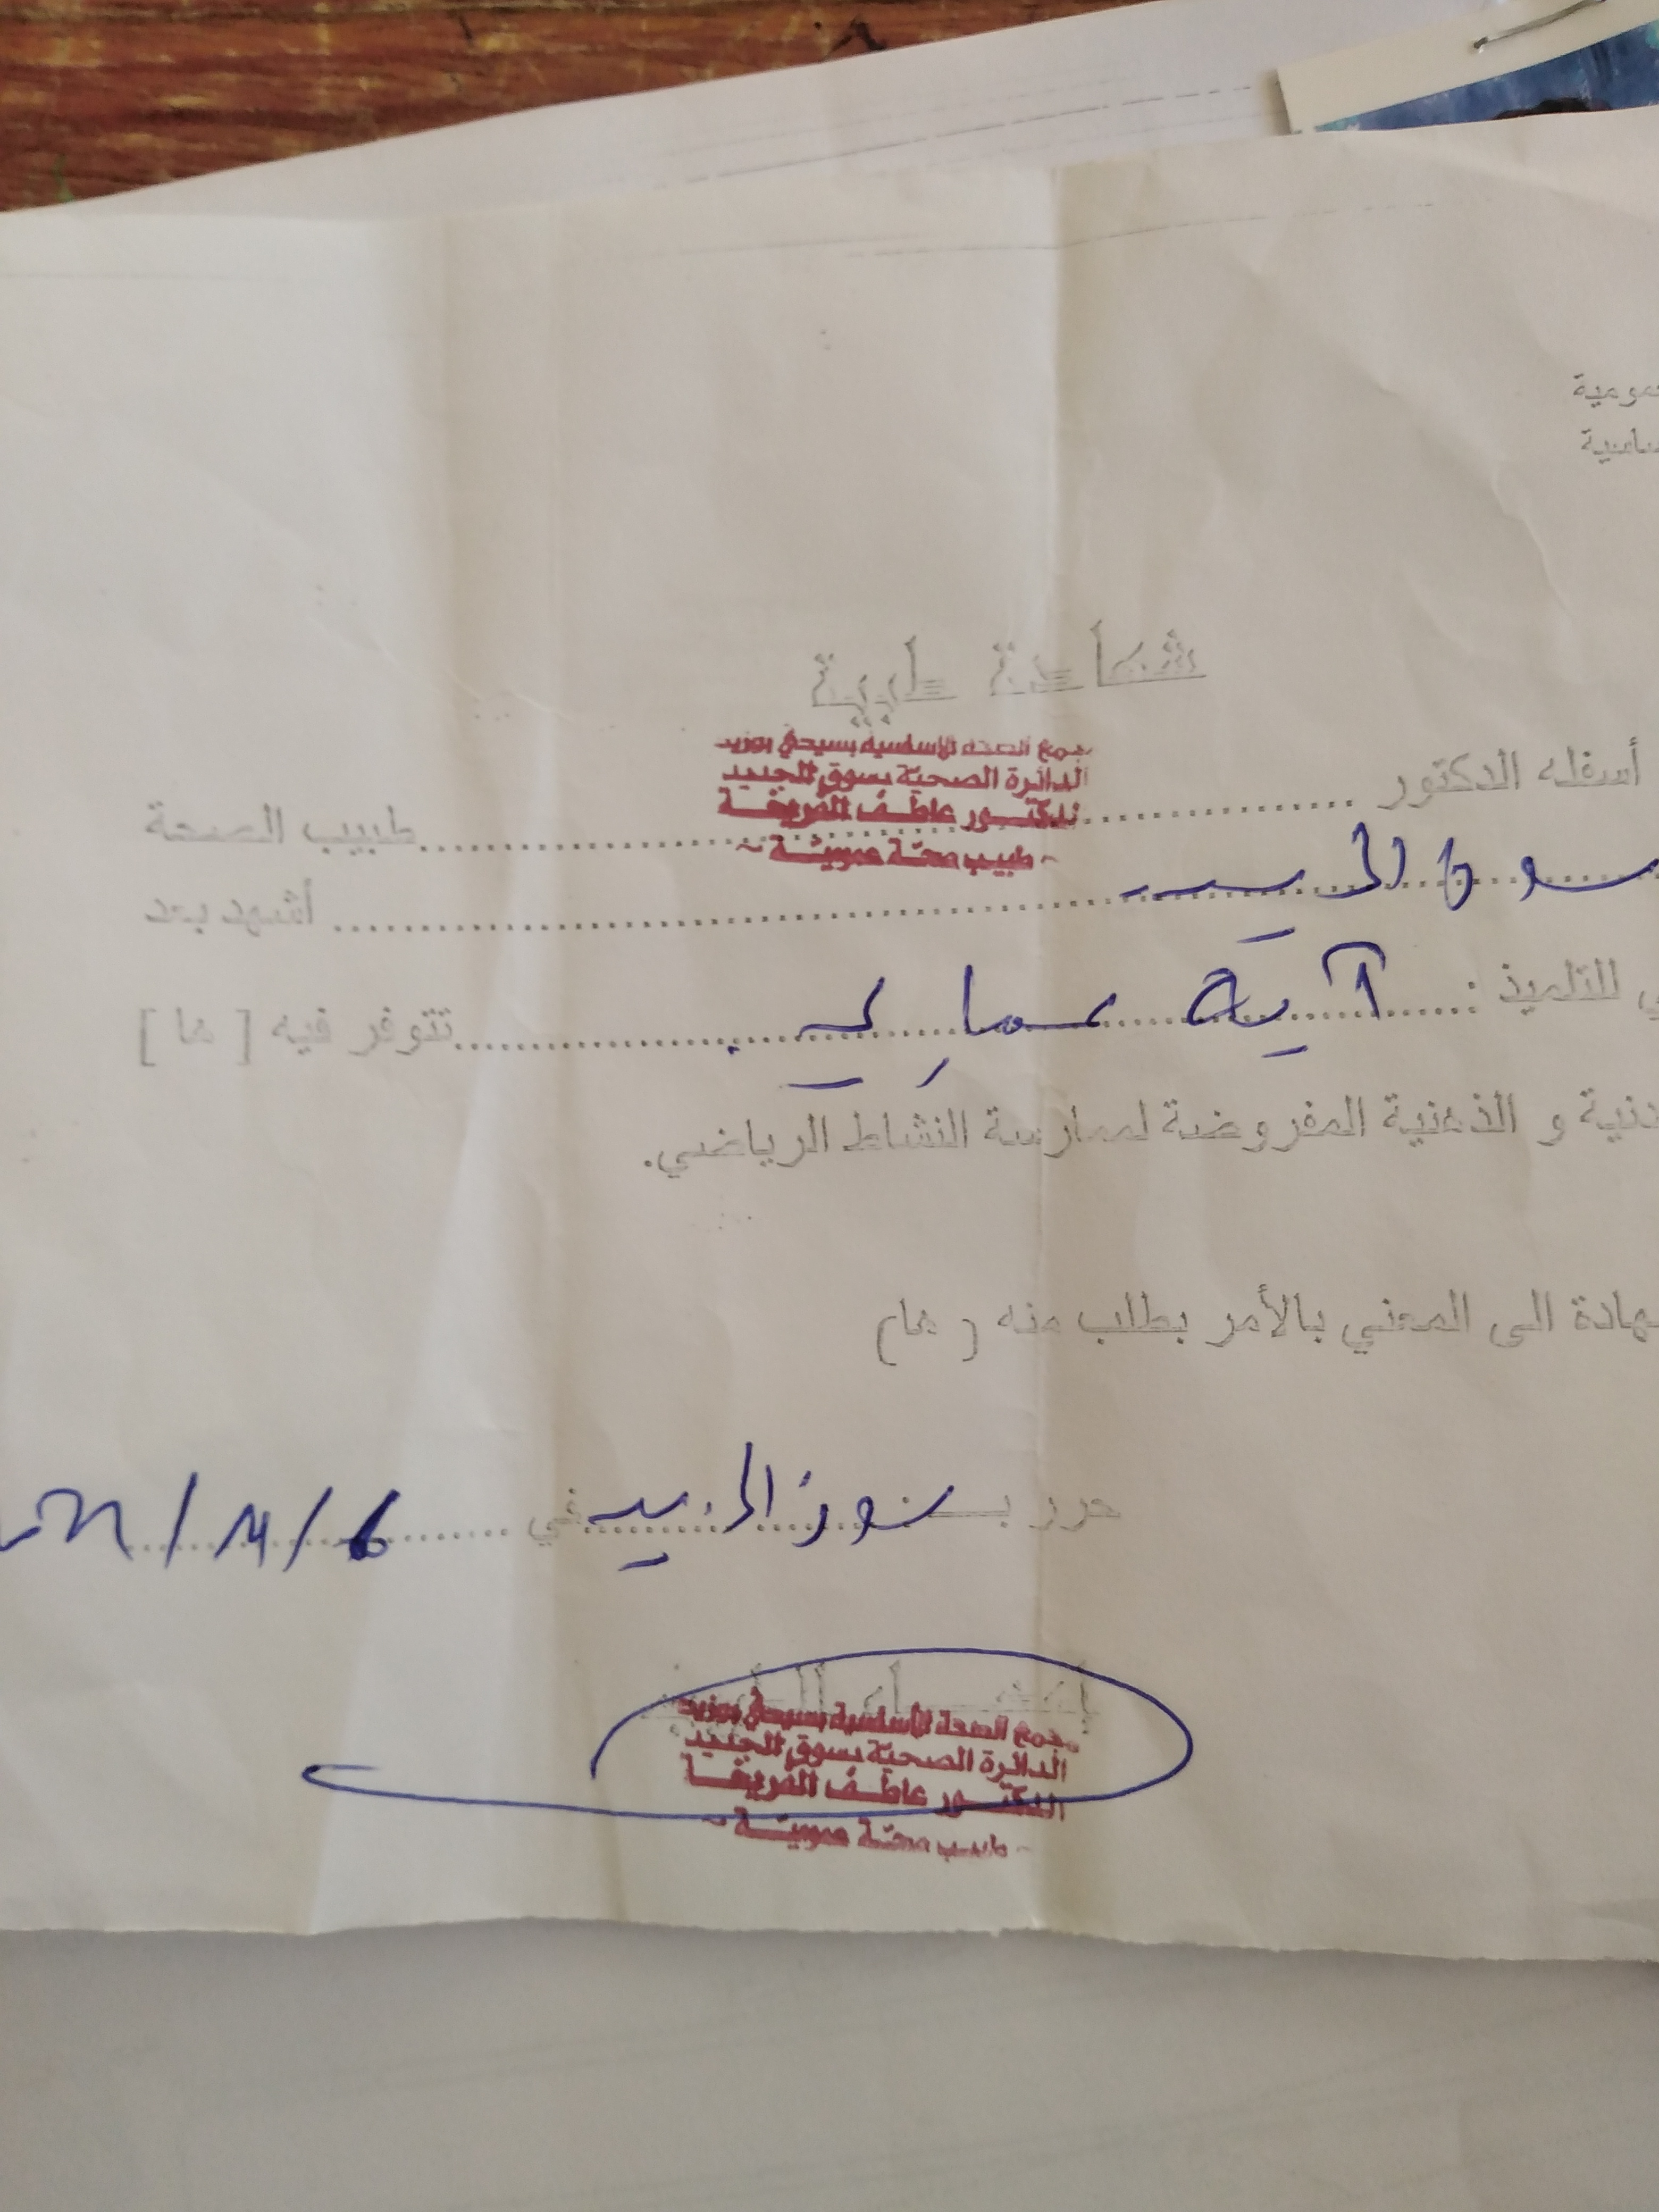 شهادة طبية
مجمع الصحة الأساسية بسيدي بوزيد
الدائرة الصحية بسوق الجديد
أسفله الدكتور
الدكتور عاطف
طبيب الصحة
~ طبيب صحة عمومية ~
سوق الجديد أشهد بعد
للتلميذ : آية عمايري تتوفر فيه [ ها ]
و الذهنية المفروضة لممارسة النشاط الرياضي.
الى المعني بالأمر بطلب منه ( ها )
حرر بـ سوق الجديد في 6/
مجمع الصحة الأساسية بسيدي بوزيد
الدائرة الصحية بسوق الجديد
الدكتور عاطف
~ طبيب صحة عمومية ~